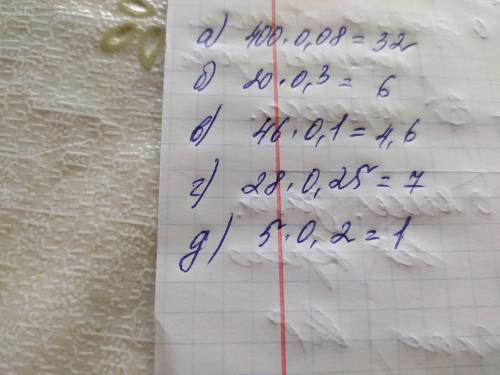 а) 400 · 0,08 = 32
б) 20 · 0,3 = 6
в) 46 · 0,1 = 4,6
г) 28 · 0,25 = 7
д) 5 · 0,2 = 1